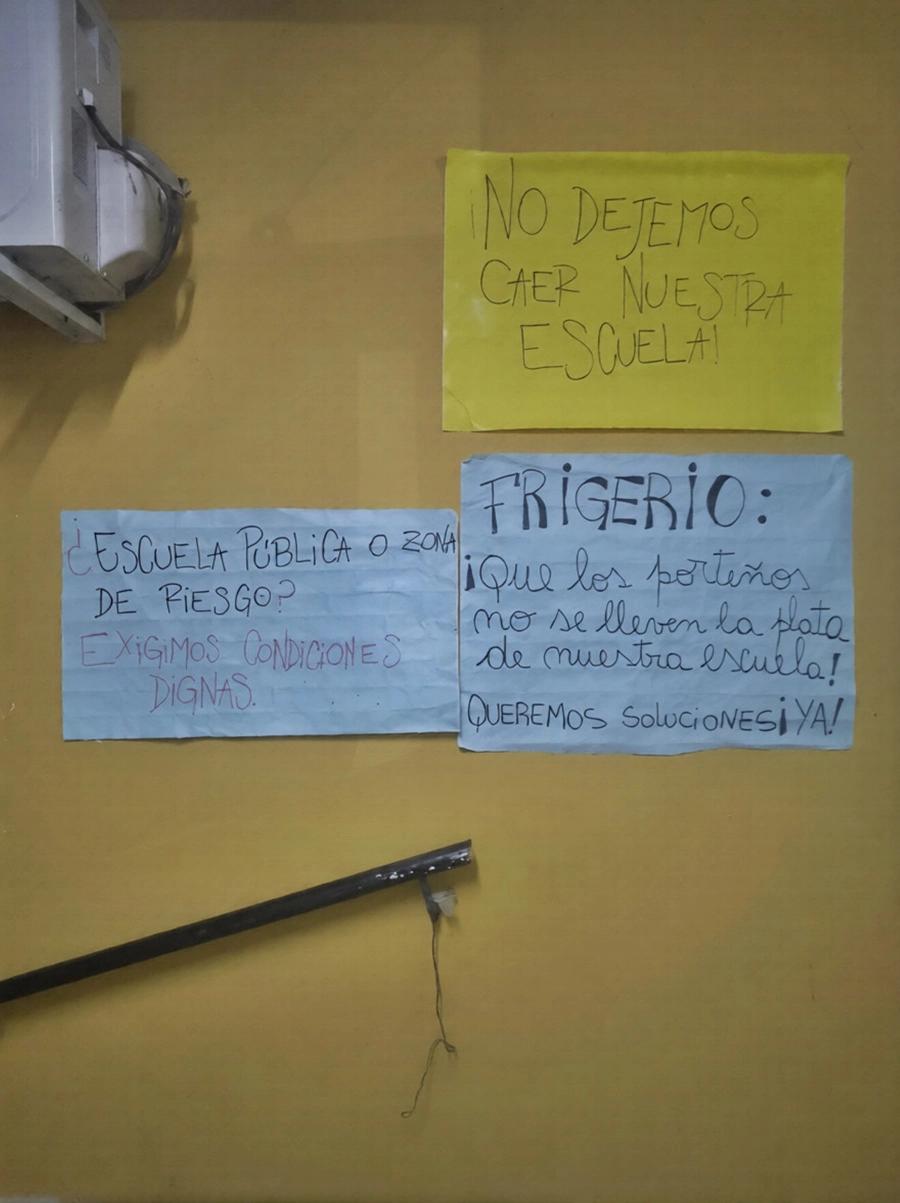 ¡NO DEJEMOS
CAER NUESTRA
ESCUELA!
¿ESCUELA PÚBLICA O ZONA
DE RIESGO?
EXIGIMOS CONDICIONES
DIGNAS.
FRIGERIO:
¡Que los porteños
no se lleven la plata
de nuestra escuela!
QUEREMOS SOLUCIONES¡YA!